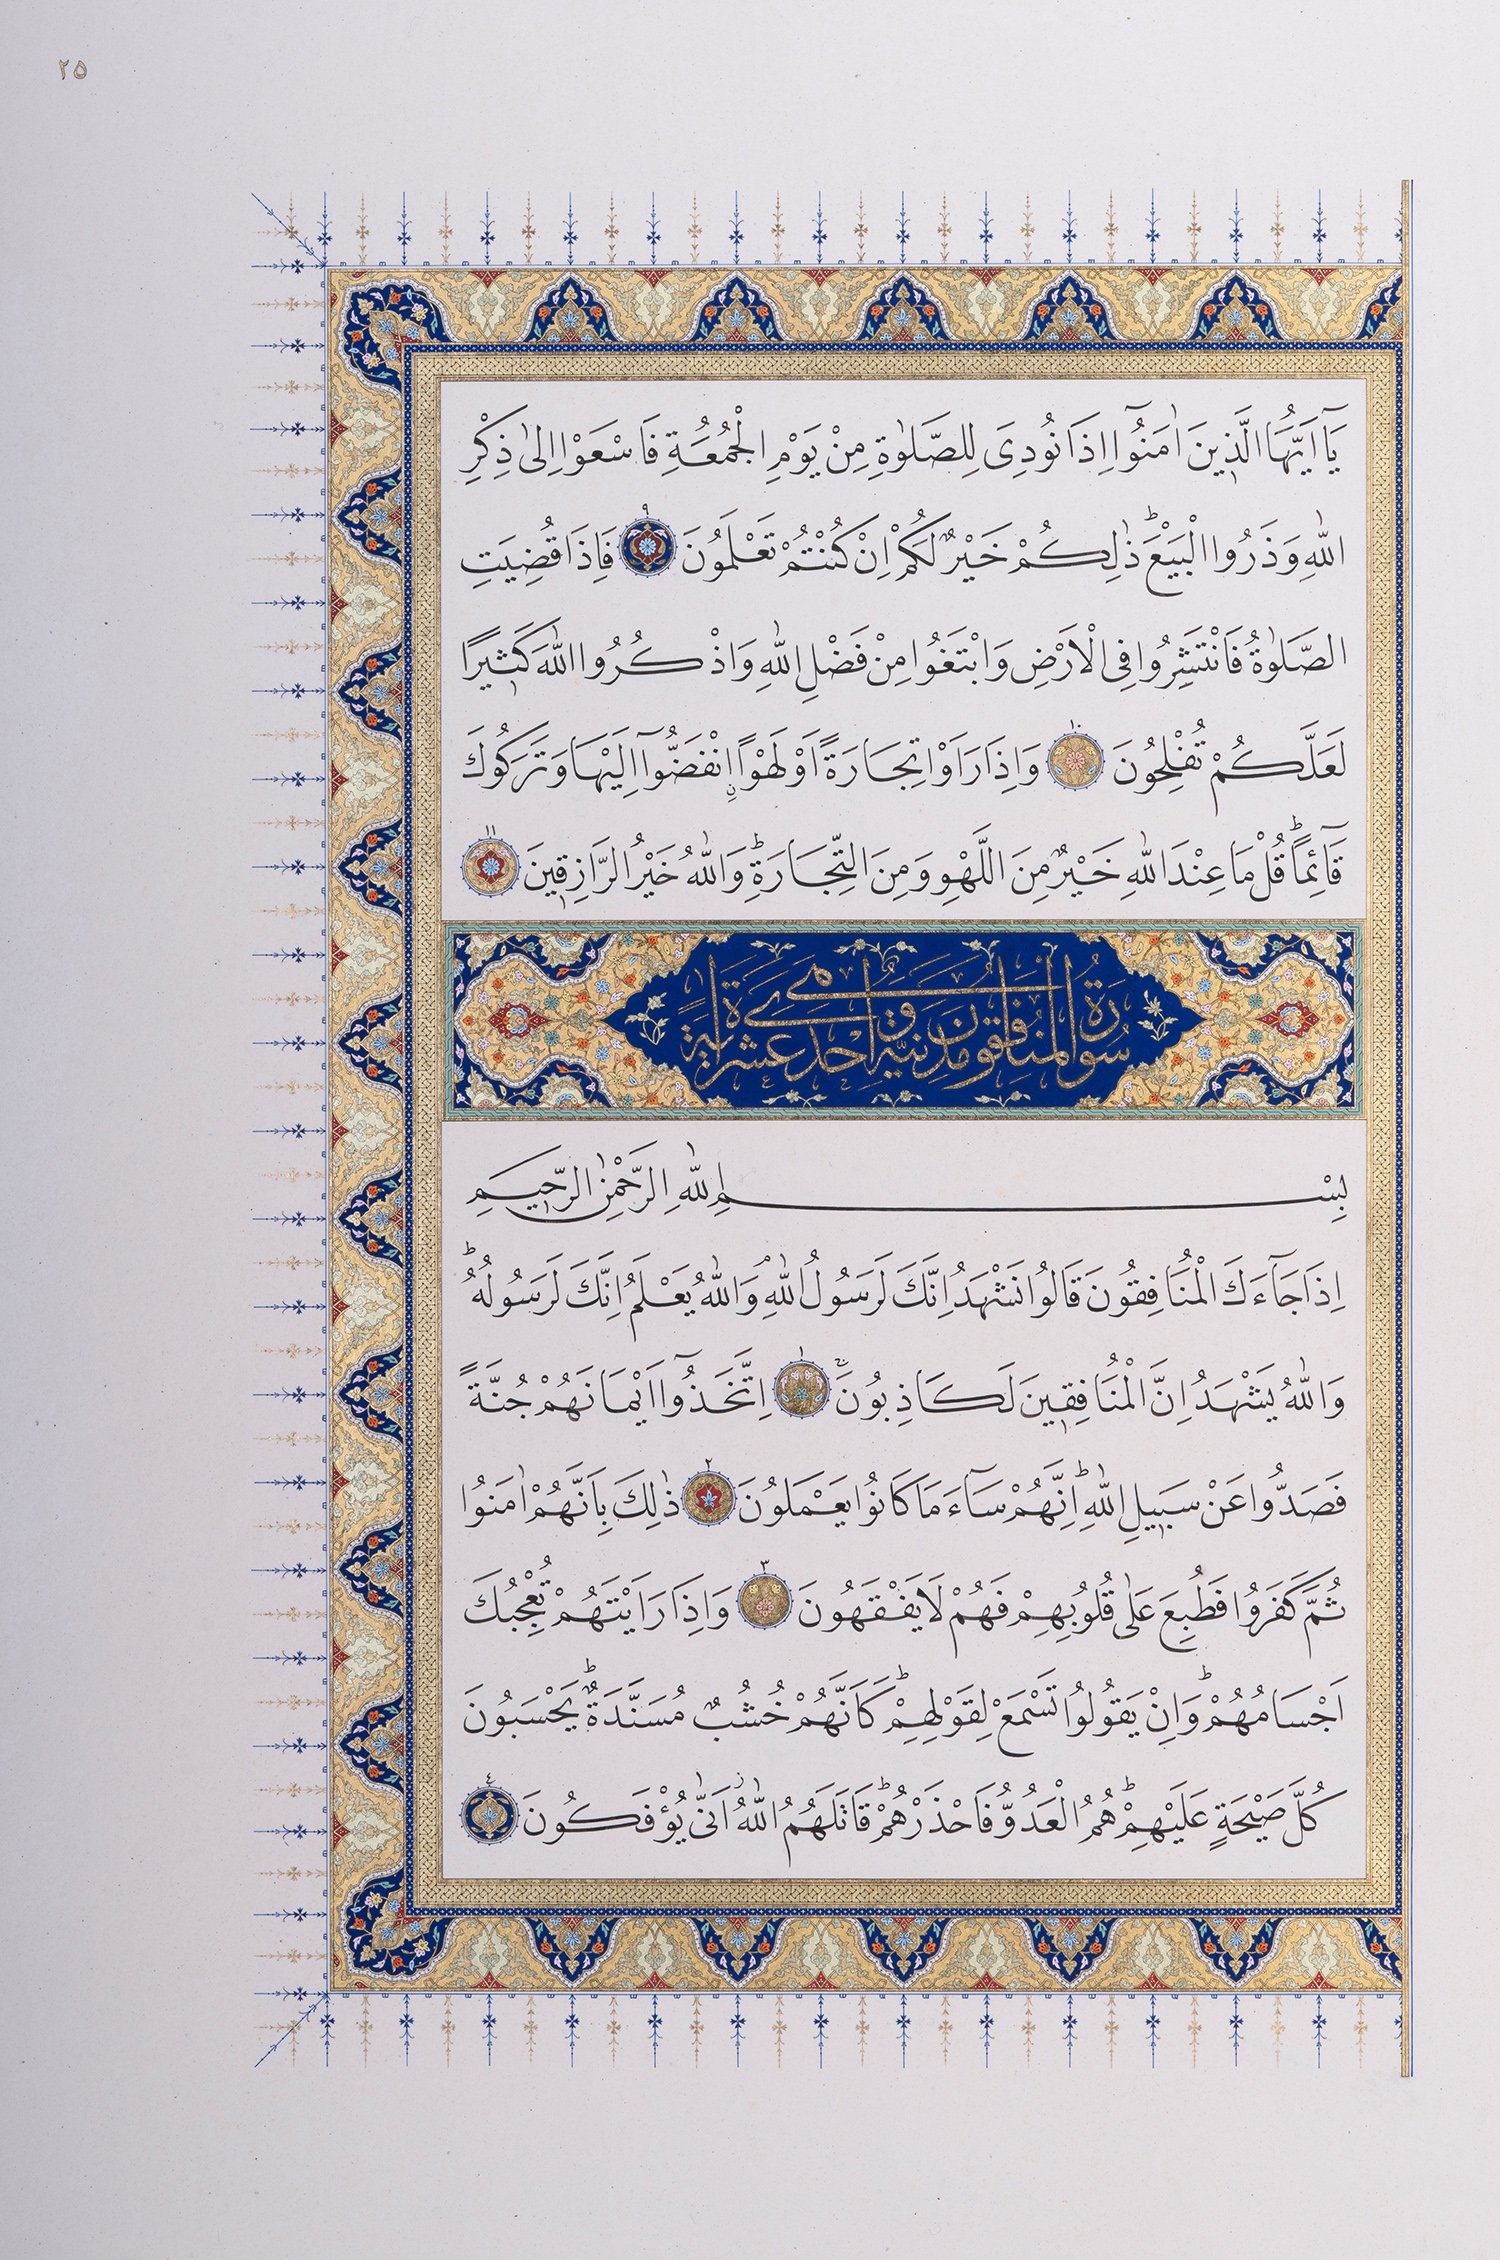 ٢٥
يَٓا اَيُّهَا الَّذ۪ينَ اٰمَنُٓوا اِذَا نُودِىَ لِلصَّلٰوةِ مِنْ يَوْمِ الْجُمُعَةِ فَاسْعَوْا اِلٰى ذِكْرِ
اللّٰهِ وَذَرُوا الْبَيْعَۜ ذٰلِكُمْ خَيْرٌ لَكُمْ اِنْ كُنْتُمْ تَعْلَمُونَ ٩ فَاِذَا قُضِيَتِ
الصَّلٰوةُ فَانْتَشِرُوا فِى الْاَرْضِ وَابْتَغُوا مِنْ فَضْلِ اللّٰهِ وَاذْكُرُوا اللّٰهَ كَث۪يرًا
لَعَلَّكُمْ تُفْلِحُونَ ١٠ وَاِذَا رَاَوْا تِجَارَةً اَوْ لَهْوًاۨ انْفَضُّٓوا اِلَيْهَا وَتَرَكُوكَ
قَٓائِمًاۜ قُلْ مَا عِنْدَ اللّٰهِ خَيْرٌ مِنَ اللَّهْوِ وَمِنَ التِّجَارَةِۜ وَاللّٰهُ خَيْرُ الرَّازِق۪ينَ ١١
سُورَةُ الْمُنَافِقُونَ مَدَنِيَّةٌ وَهِىَ اِحْدٰى عَشْرَةَ اٰيَةً
بِسْمِ اللّٰهِ الرَّحْمٰنِ الرَّح۪يمِ
اِذَا جَٓاءَكَ الْمُنَافِقُونَ قَالُوا نَشْهَدُ اِنَّكَ لَرَسُولُ اللّٰهِۢ وَاللّٰهُ يَعْلَمُ اِنَّكَ لَرَسُولُهُۜ
وَاللّٰهُ يَشْهَدُ اِنَّ الْمُنَافِق۪ينَ لَكَاذِبُونَۚ ١ اِتَّخَذُٓوا اَيْمَانَهُمْ جُنَّةً
فَصَدُّوا عَنْ سَب۪يلِ اللّٰهِۜ اِنَّهُمْ سَٓاءَ مَا كَانُوا يَعْمَلُونَ ٢ ذٰلِكَ بِاَنَّهُمْ اٰمَنُوا
ثُمَّ كَفَرُوا فَطُبِعَ عَلٰى قُلُوبِهِمْ فَهُمْ لَا يَفْقَهُونَ ٣ وَاِذَا رَاَيْتَهُمْ تُعْجِبُكَ
اَجْسَامُهُمْۜ وَاِنْ يَقُولُوا تَسْمَعْ لِقَوْلِهِمْۜ كَاَنَّهُمْ خُشُبٌ مُسَنَّدَةٌۜ يَحْسَبُونَ
كُلَّ صَيْحَةٍ عَلَيْهِمْۜ هُمُ الْعَدُوُّ فَاحْذَرْهُمْۜ قَاتَلَهُمُ اللّٰهُۘ اَنّٰى يُؤْفَكُونَ ٤